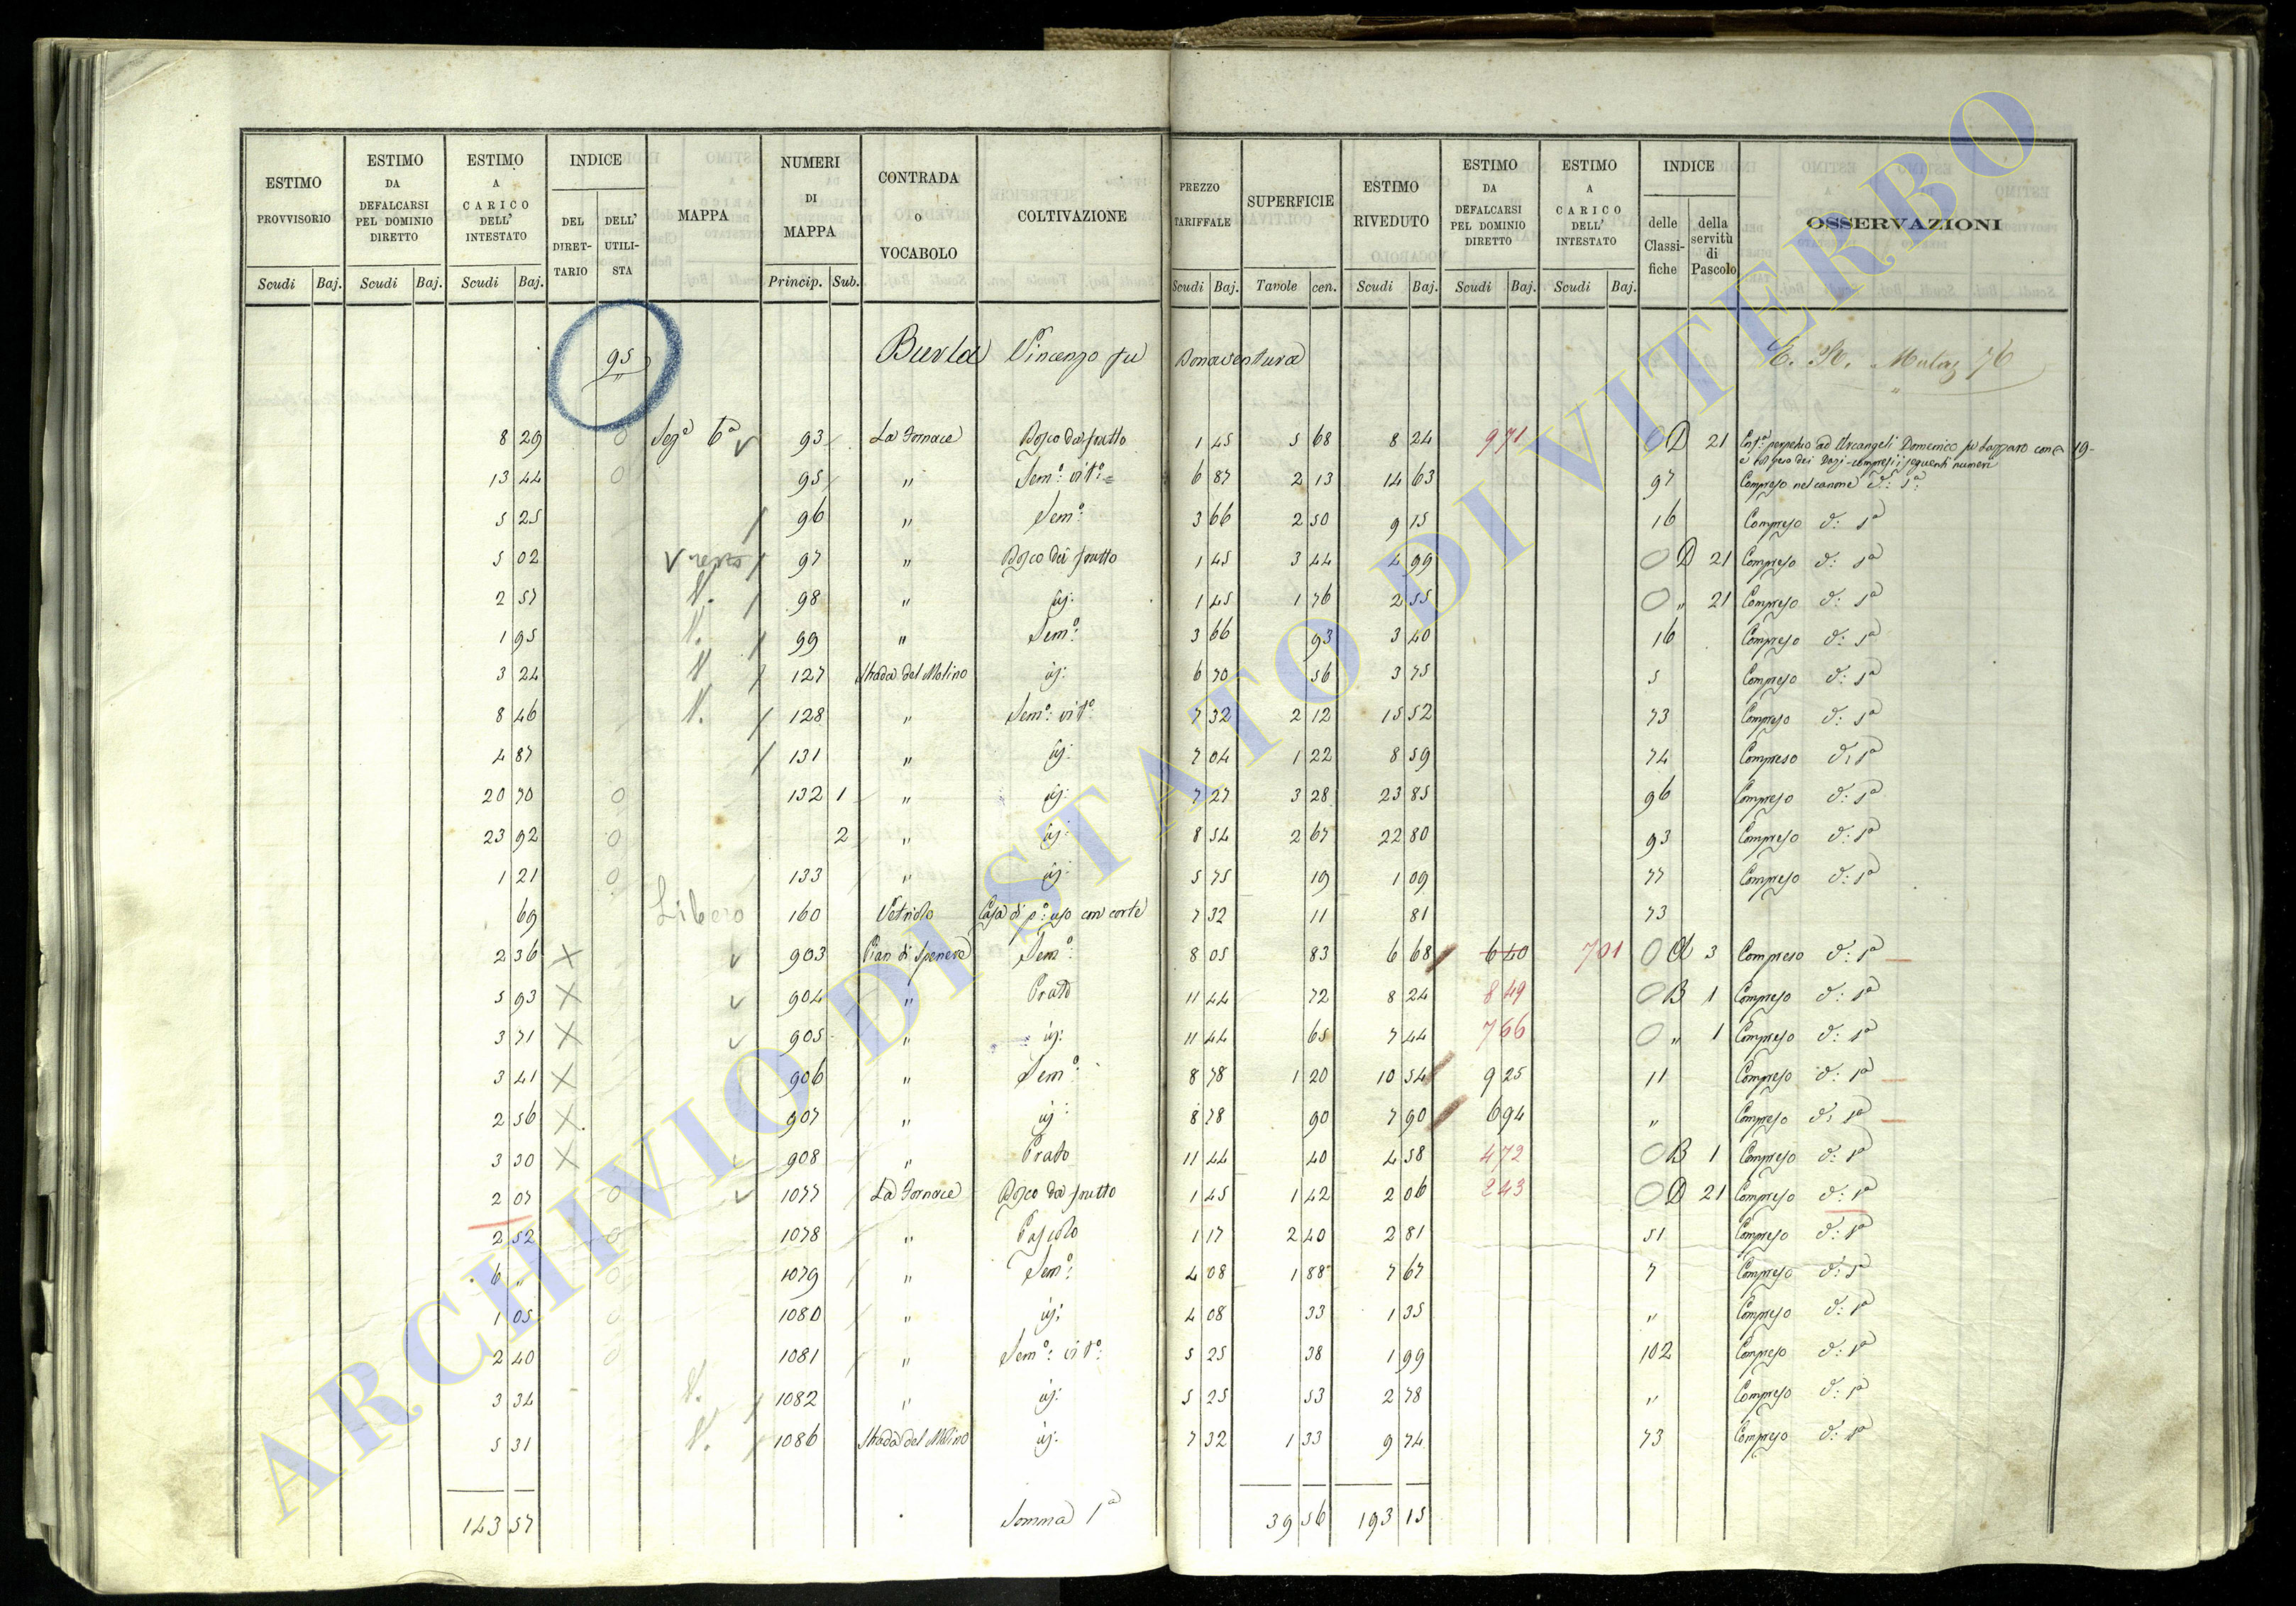 ESTIMO PROVVISORIO
ESTIMO DA DEFALCARSI PEL DOMINIO DIRETTO
ESTIMO A CARICO DELL' INTESTATO
INDICE
DEL DIRETTARIO
DELL' UTILISTA
MAPPA
NUMERI DI MAPPA
CONTRADA O VOCABOLO
COLTIVAZIONE
PREZZO TARIFFALE
SUPERFICIE
ESTIMO RIVEDUTO
ESTIMO DA DEFALCARSI PEL DOMINIO DIRETTO
ESTIMO A CARICO DELL' INTESTATO
INDICE
delle Classifiche
della servitù di Pascolo
OSSERVAZIONI
Scudi Baj. Scudi Baj. Scudi Baj. Princip. Sub. Scudi Baj. Tavole cen. Scudi Baj. Scudi Baj. Scudi Baj.
95 Burla Vincenzo fu Bonaventura 76
8 29 0 Sez.e 6a 93 La Fornace Bosco da frutto 1 45 5 68 8 24 9 71 0 D 21 perpetuo ad Arcangeli Domenico fu Lazzaro 19-
dei Dazi compresi i seguenti numeri
13 44 0 95 " Sem.o vit.o 6 87 2 13 14 63 97 Compreso nel canone d: 1a
5 25 96 " Sem.o 3 66 2 50 9 15 16 Compreso d: 1a
5 02 97 " Bosco da frutto 1 45 3 44 4 99 0 D 21 Compreso d: 1a
2 57 98 " id: 1 45 1 76 2 55 0 " 21 Compreso d: 1a
1 95 99 " Sem.o 3 66 93 3 40 16 Compreso d: 1a
3 24 127 Strada del Molino id: 6 70 56 3 75 5 Compreso d: 1a
8 46 128 " Sem.o vit.o 7 32 2 12 15 52 73 Compreso d: 1a
4 87 131 " id: 7 04 1 22 8 59 74 Compreso d: 1a
20 70 0 132 1 " id: 7 27 3 28 23 85 96 Compreso d: 1a
23 92 0 2 " id: 8 54 2 67 22 80 93 Compreso d: 1a
1 21 0 133 " id: 5 75 19 1 09 77 Compreso d: 1a
69 Libero 160 Vetriolo Casa di p.o uso con corte 7 32 11 81 73
2 36 X 903 Pian di Speneva Sem.o 8 05 83 6 68 6 40 7 01 0 A 3 Compreso d: 1a
5 93 X 904 " Prato 11 44 72 8 24 8 49 0 B 1 Compreso d: 1a
3 71 X 905 " id: 11 44 65 7 44 7 66 0 " 1 Compreso d: 1a
3 41 X 906 " Sem.o 8 78 1 20 10 54 9 25 11 Compreso d: 1a
2 56 X 907 " id: 8 78 90 7 90 6 94 " Compreso d: 1a
3 30 X 908 " Prato 11 44 40 4 58 4 72 0 B 1 Compreso d: 1a
2 07 0 1077 La Fornace Bosco da frutto 1 45 1 42 2 06 2 43 0 D 21 Compreso d: 1a
2 52 0 1078 " Pascolo 1 17 2 40 2 81 51 Compreso d: 1a
6 " 0 1079 " Sem.o 4 08 1 88 7 67 7 Compreso d: 1a
1 05 0 1080 " id: 4 08 33 1 35 " Compreso d: 1a
2 40 0 1081 " Sem.o vit.o 5 25 38 1 99 102 Compreso d: 1a
3 34 1082 " id: 5 25 53 2 78 " Compreso d: 1a
5 31 1086 Strada del Molino id: 7 32 1 33 9 74 73 Compreso d: 1a
143 57 Somma 1a 39 56 193 15
ARCHIVIO DI STATO DI VITERBO